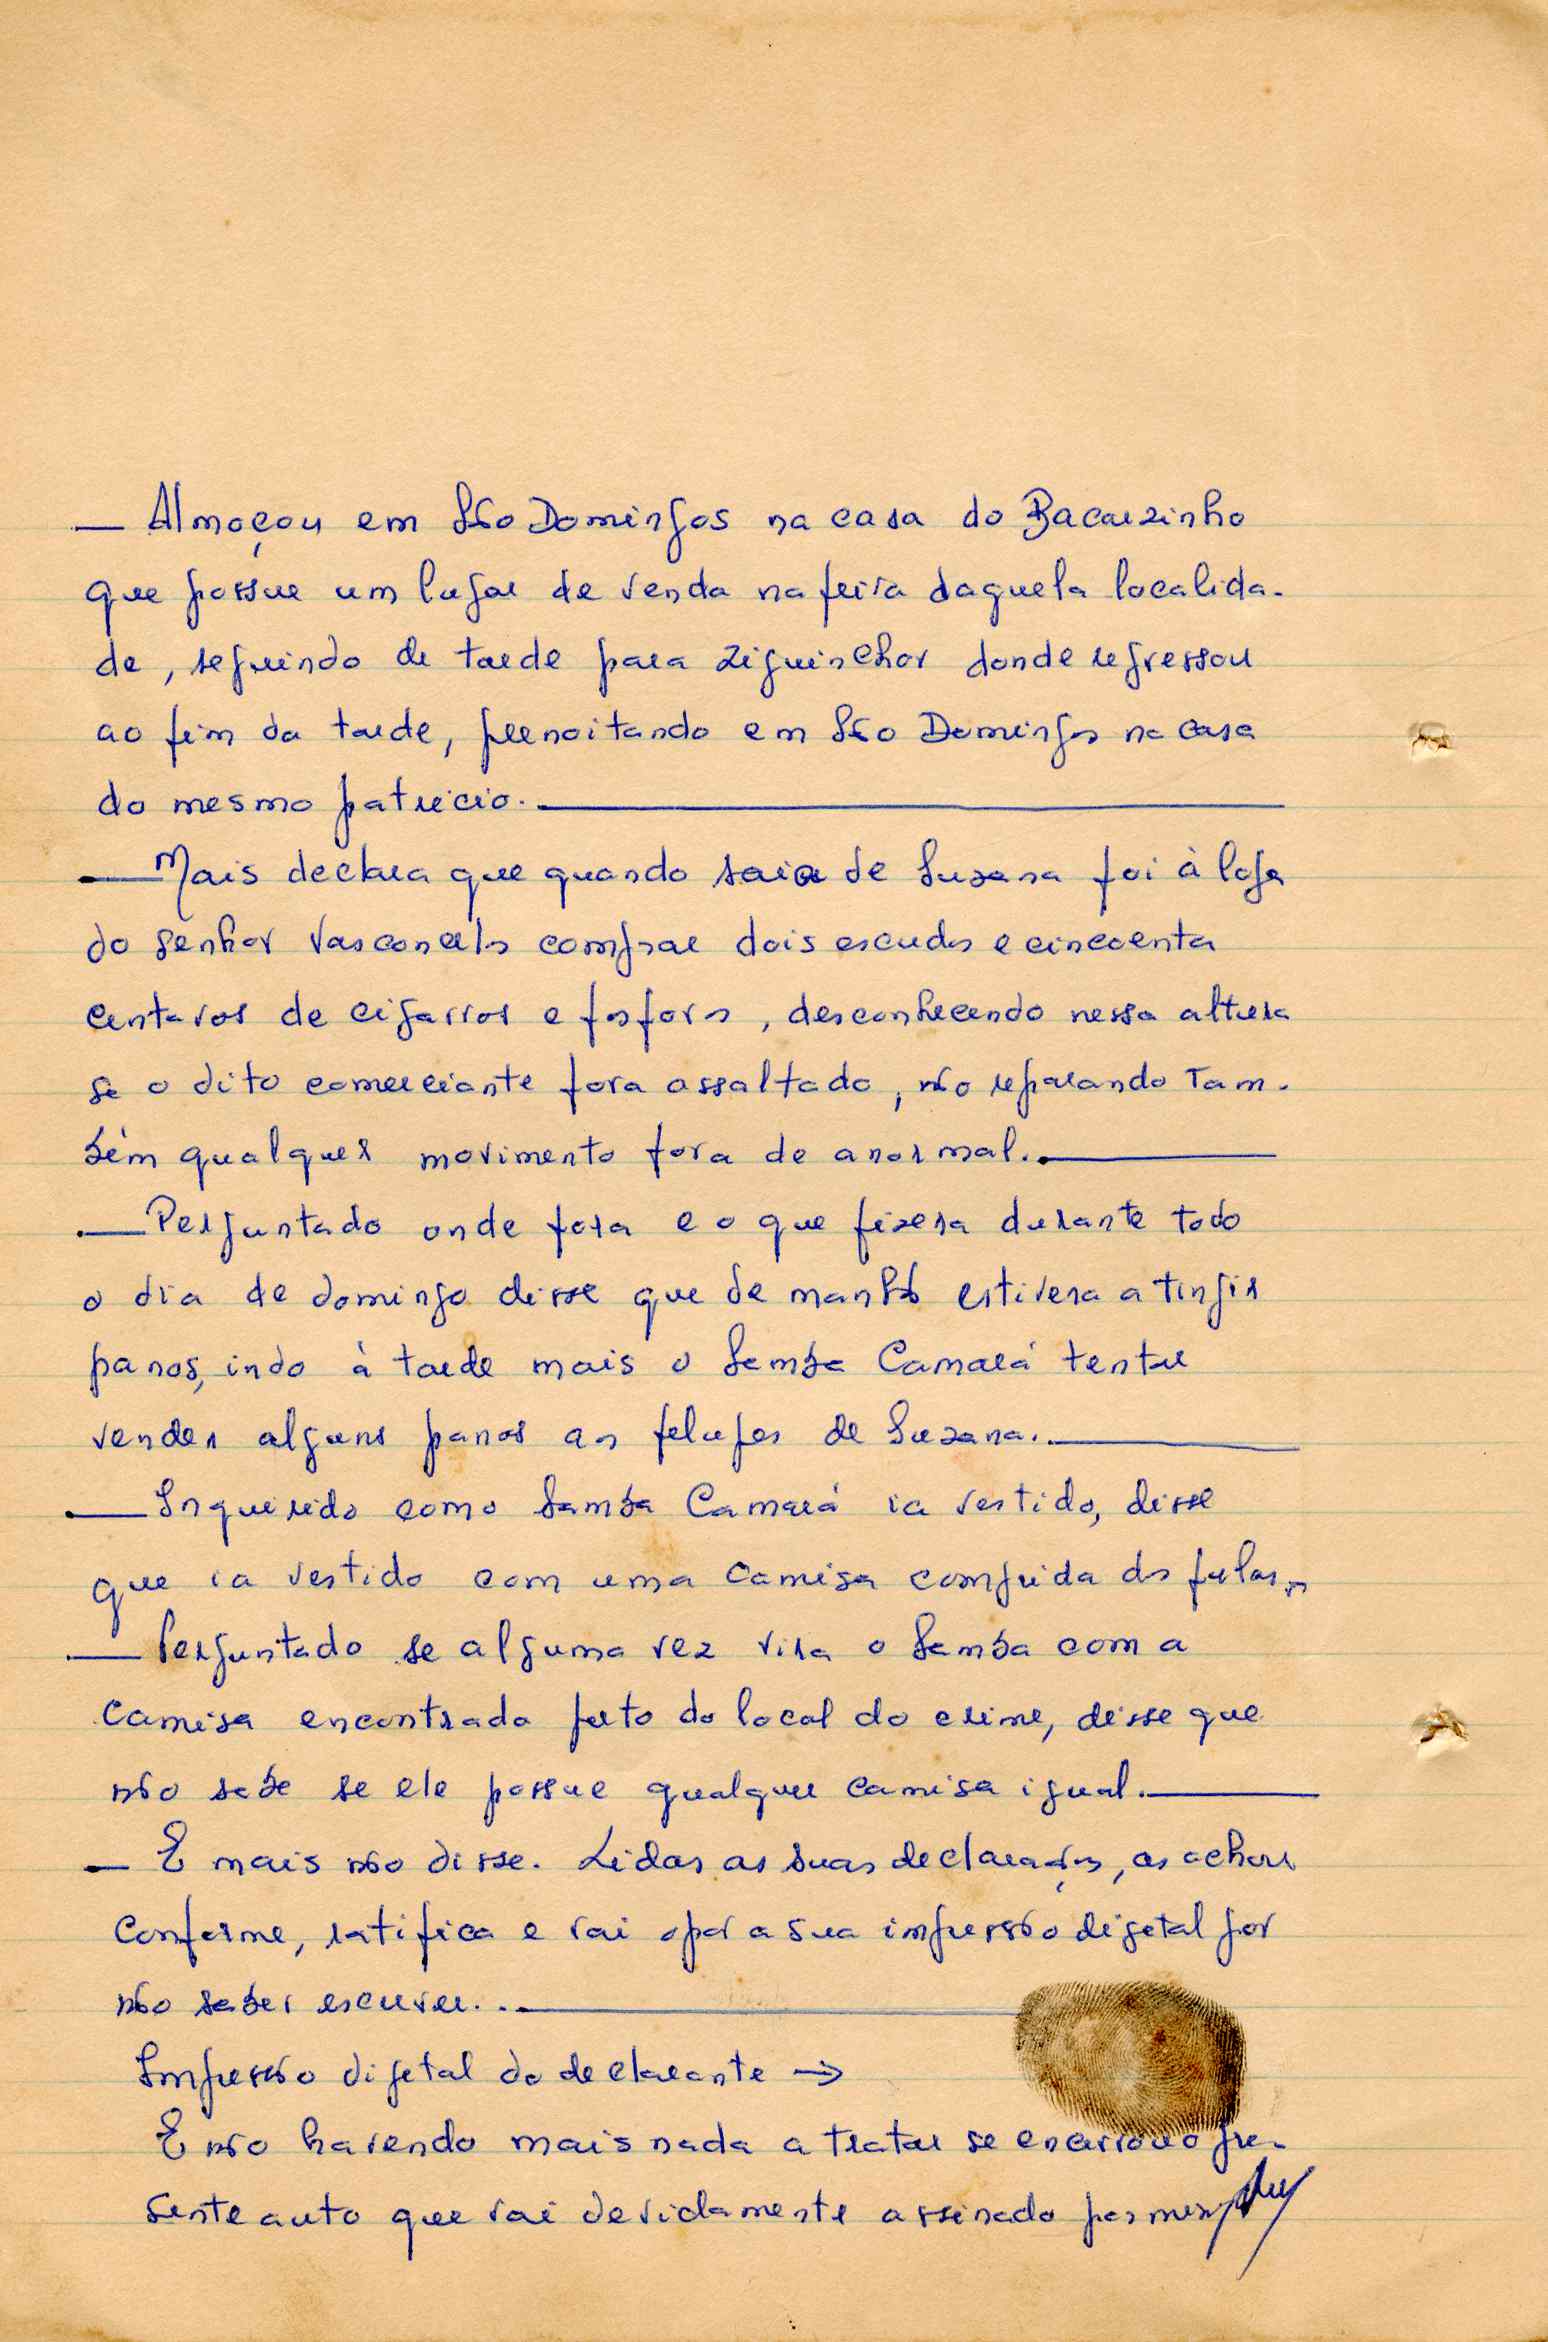 — Almoçou em São Domingos na casa do Bacarzinho
que possue um lugar de venda na feira daquela localida-
de, seguindo de tarde para Ziguinchor donde regressou
ao fim da tarde, pernoitando em São Domingos na casa
do mesmo patricio.
— Mais declara que quando saia de Suzana foi à loja
do senhor Vasconcelos comprar dois escudos e cincoenta
centavos de cigarros e fosforos, desconhecendo nessa altura
se o dito comerciante fora assaltado, não reparando tam-
bém qualquer movimento fora de anormal.
— Perguntado onde fora e o que fizera durante todo
o dia de domingo disse que de manhã estivera a tingir
panos, indo à tarde mais o Samba Camará tentar
vender alguns panos aos felupes de Suzana.
— Inquirido como Samba Camará ia vestido, disse
que ia vestido com uma camisa comprida dos fulas.
— Perguntado se alguma vez vira o Samba com a
camisa encontrada perto do local do crime, disse que
não sabe se ele possue qualquer camisa igual.
— E mais não disse. Lidas as suas declarações, as achou
conforme, ratifica e vai opôr a sua impressão digetal por
não saber escrever.
Impressão digetal do declarante →
E não havendo mais nada a tratar se encerrou o pre-
sente auto que vai devidamente assinado por mim,